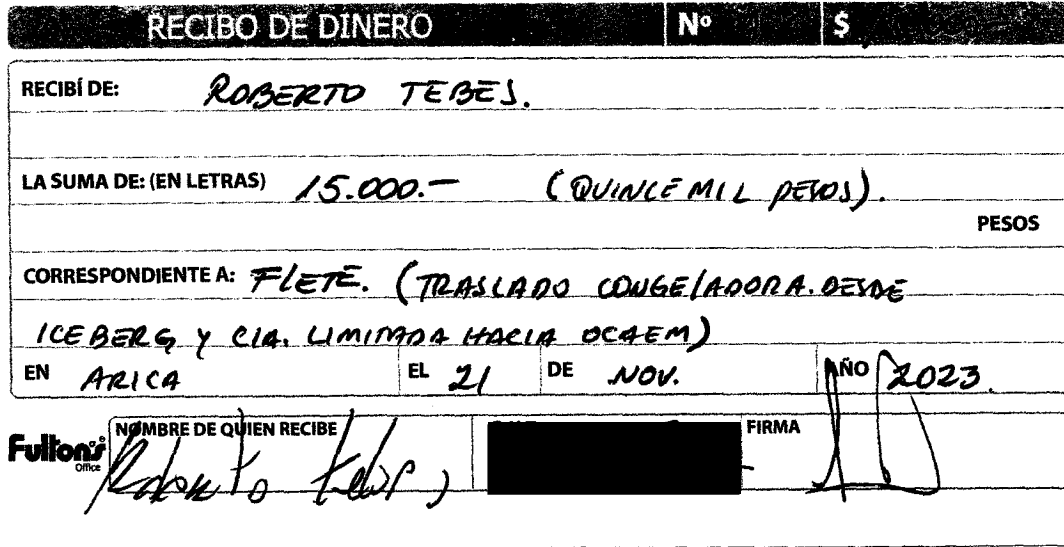 RECIBO DE DINERO Nº $
RECIBÍ DE: ROBERTO TEBES.
LA SUMA DE: (EN LETRAS) 15.000.- (QUINCE MIL PESOS).
PESOS
CORRESPONDIENTE A: FLETE. (TRASLADO CONGELADORA. DESDE
ICEBERG Y CIA. LIMITADA HACIA OCAEM)
EN ARICA EL 21 DE NOV. AÑO 2023.
Fulton's Office NOMBRE DE QUIEN RECIBE FIRMA
Roberto Tebes